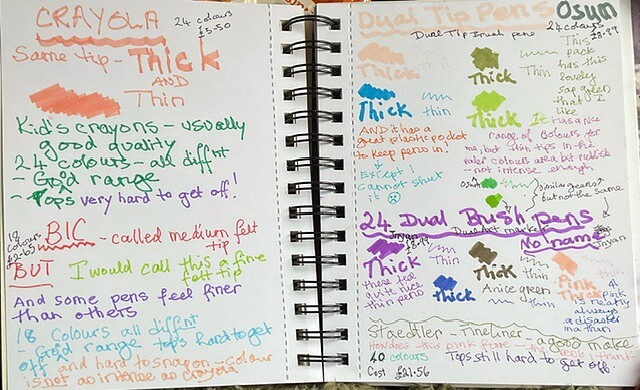 CRAYOLA
24 colours
£5-50
Same tip - Thick
AND
Thin
Kid's crayons - usually
good quality
24 colours - all diffnt
- Good range
- Tops very hard to get off!
18
colours
£2-65
BIC - called medium felt
tip
BUT I would call this a fine
felt tip
And some pens feel finer
than others
18 colours all diffnt
- Good range tops hard to get
off and hard to snap on - colour
is not as intense as crayola
Dual Tip Pens Osum
Dual Tip Brush pens
24 colours
£8-99
Thick Thin
Thick Thin
This
pack
has this
lovely
sap green
that I
like
Thick thin
Thick
AND it has a
great plastic pocket
to keep pens in!
Except I
cannot shut
it
It has a nice
range of colours for
me, but skin tips in the
colours area but rubbish
- not intense enough
Osum
similar greens
but not the same
24 Dual Brush pens
Dual Art marker
No name
Thick
Thin
Thick
Thin
Pink
Thick
these feel
quite nice
thin pens
Thick
A nice green
thin
pink
is nearly
always
a disaster
in a thin
Staedtler - fineliner - a good make
40 colours Tops still hard to get off.
Cost £21.56